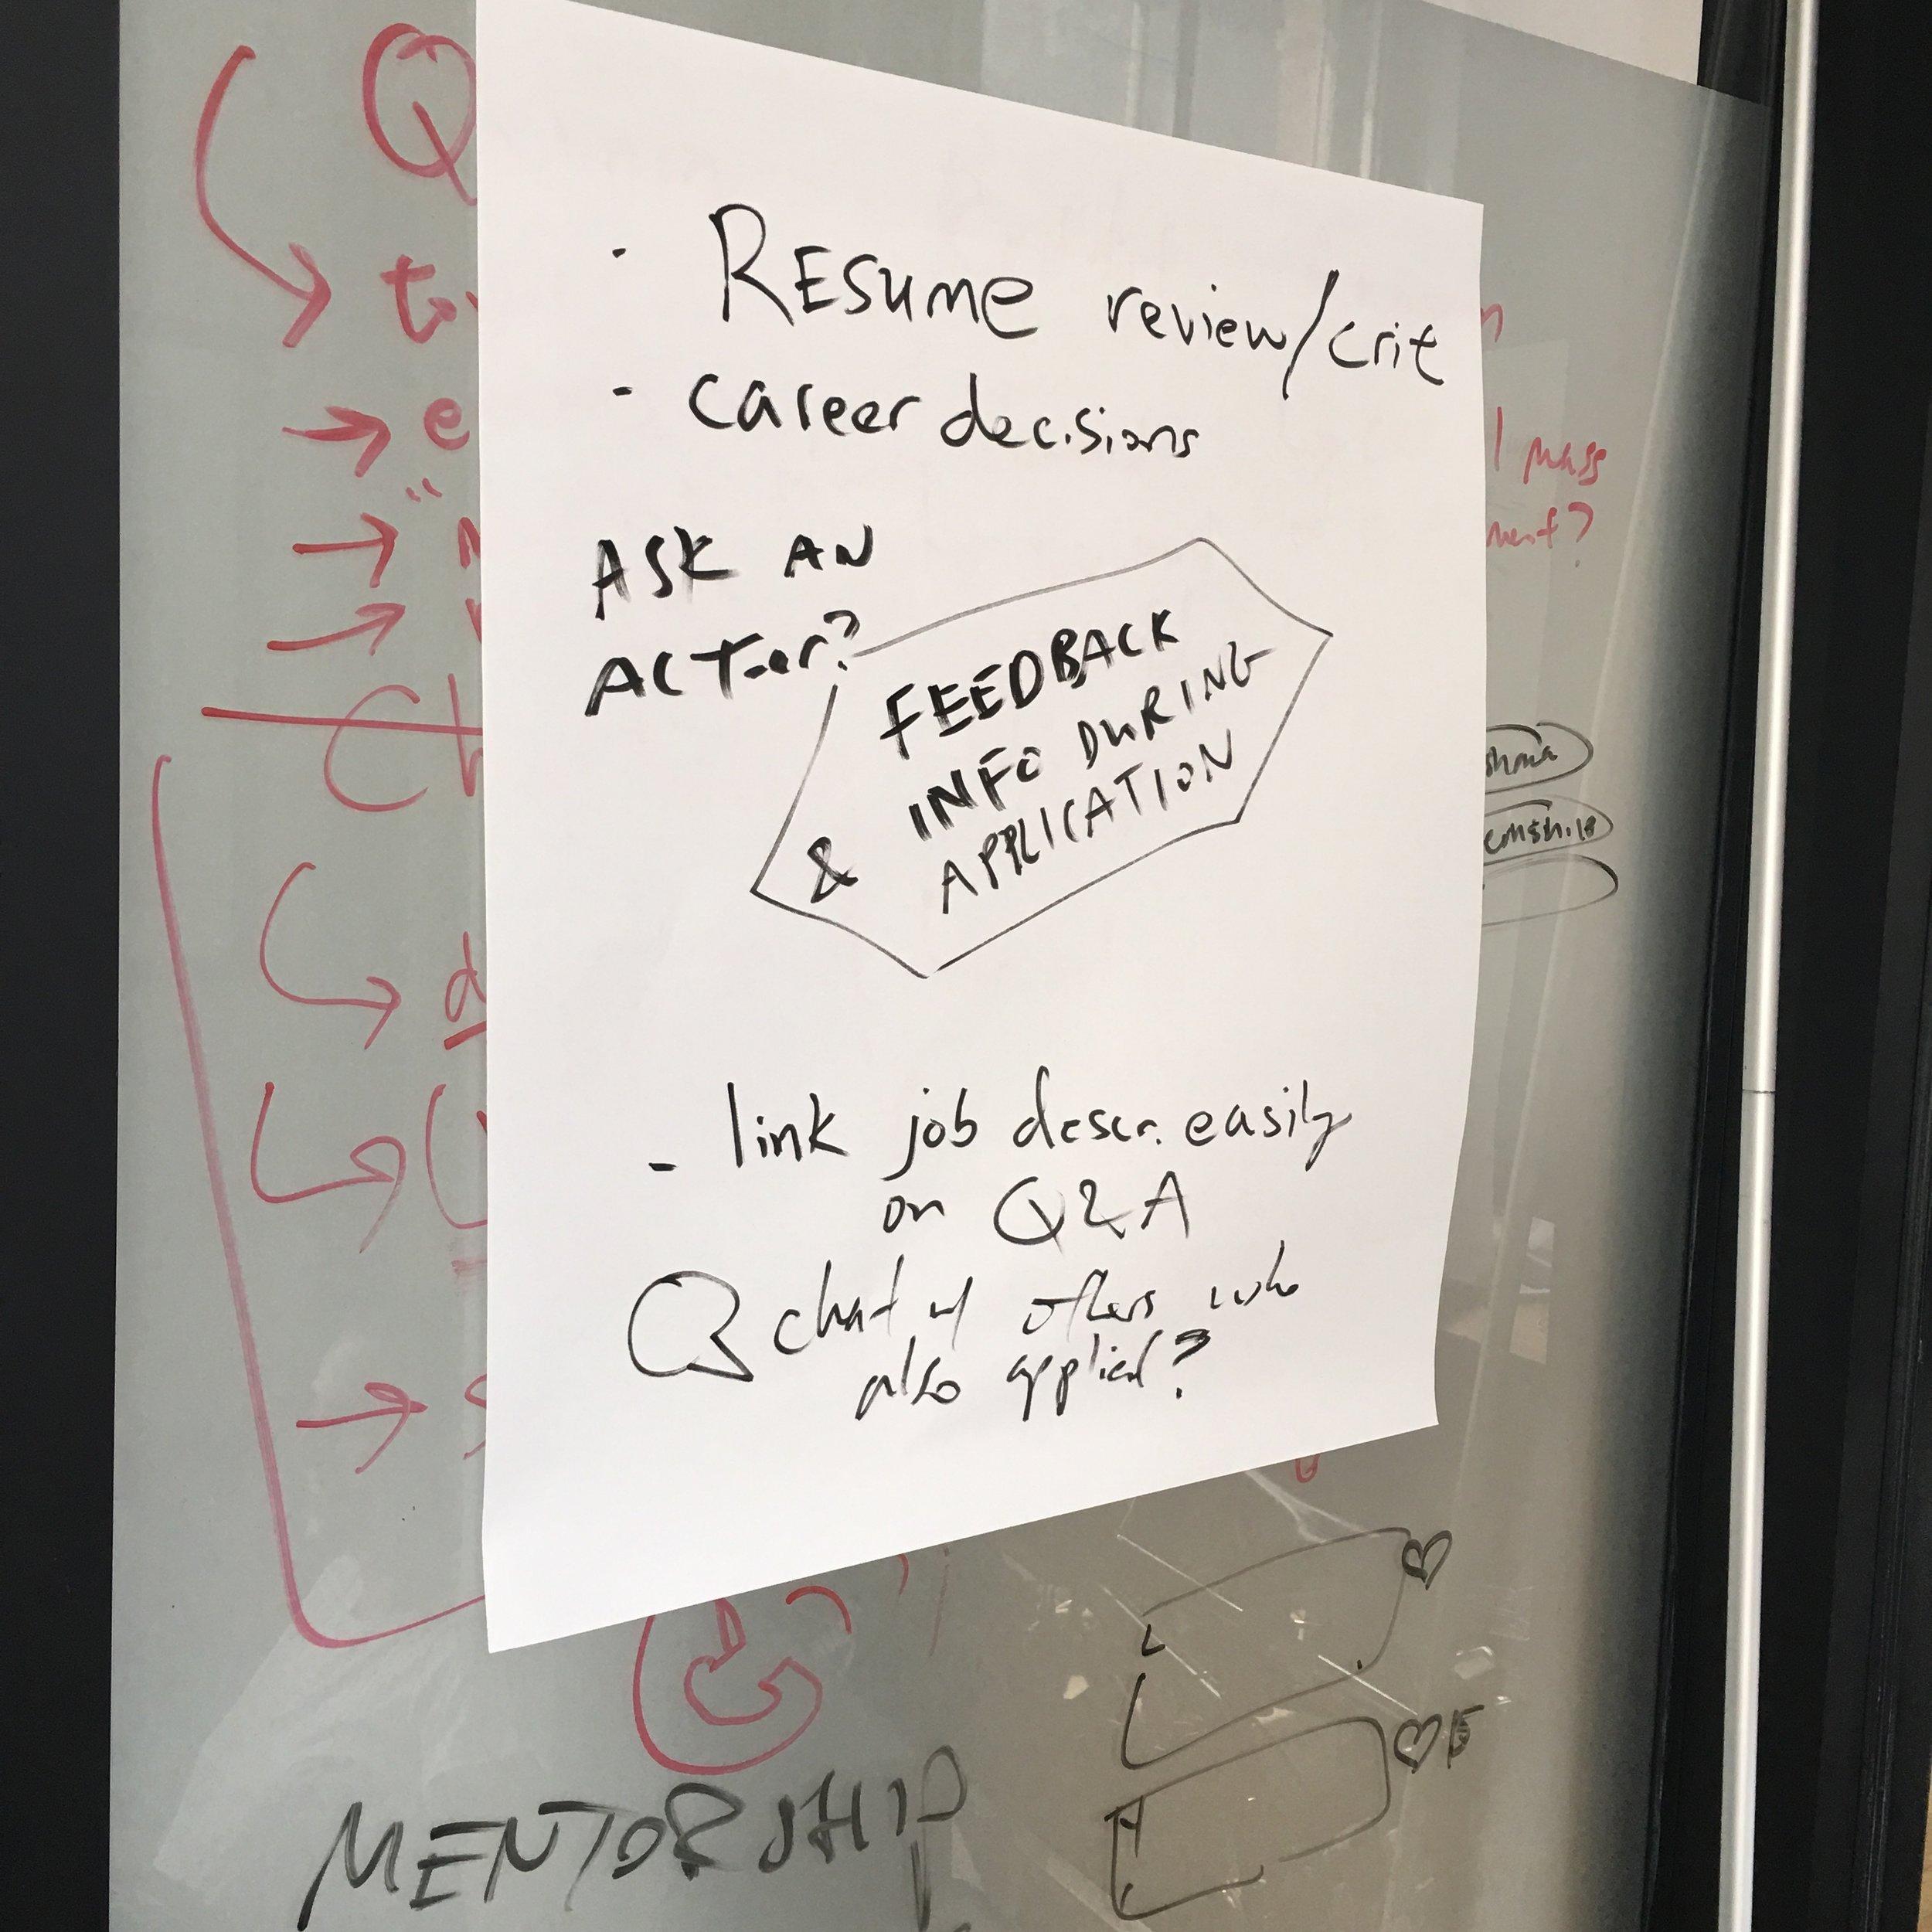 · RESume review/crit
- career decisions
ASK AN
ACTor?
FEEDBACK
& INFO DURING
APPLICATION
- link job descr. easily
on Q&A
chat w/ others who
also applied?
Q
→ e
mass
ment?
MENTORSHIP